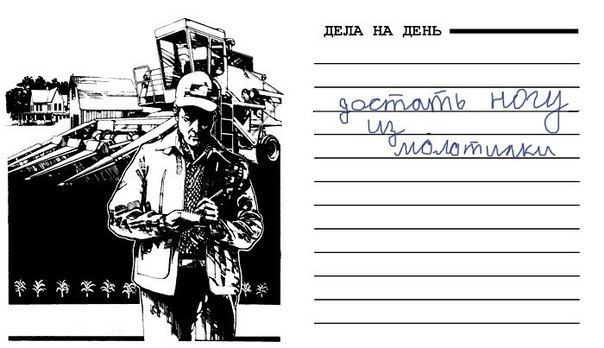 ДЕЛА НА ДЕНЬ
достать ногу
из
молотилки